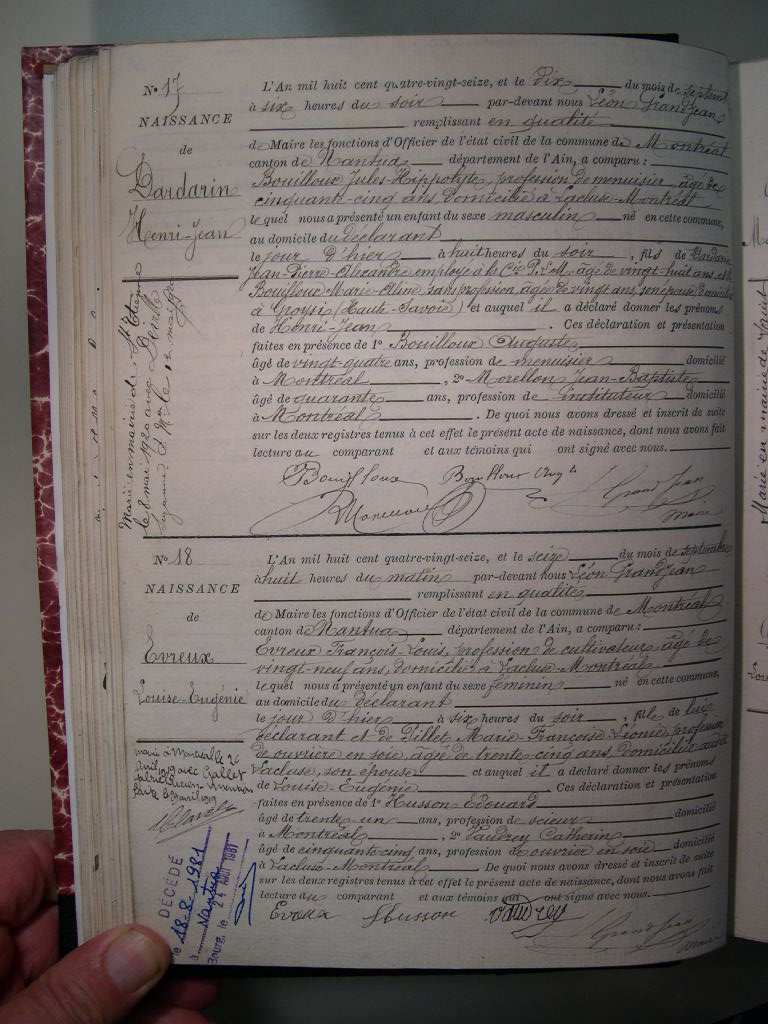 N° 17
NAISSANCE
de
Dardarin
Henri-Jean
L'An mil huit cent quatre-vingt-seize, et le dix du mois de septembre
à six heures du soir par-devant nous Léon Grandjean
remplissant en qualité
de Maire les fonctions d'Officier de l'état civil de la commune de Montréal
canton de Nantua département de l'Ain, a comparu :
Bouilloux Jules-Hippolyte, profession de menuisier, âgé de
cinquante-cinq ans, domicilié à Lacluse-Montréal
lequel nous a présenté un enfant du sexe masculin né en cette commune,
au domicile du déclarant
le jour d'hier à huit heures du soir, fils de Dardarin
Jean-Pierre-Alexandre employé à la Cie P.L.M. âgé de vingt huit ans et de
Bouilloux Marie sans profession âgée de vingt ans, son épouse domiciliés
à Groisy (Haute-Savoie) et auquel il a déclaré donner les prénoms
de Henri-Jean. Ces déclaration et présentation
faites en présence de 1° Bouilloux Auguste
âgé de vingt-quatre ans, profession de menuisier domicilié
à Montréal, 2° Morellon Jean-Baptiste
âgé de quarante ans, profession de instituteur domicilié
à Montréal. De quoi nous avons dressé et inscrit de suite
sur les deux registres tenus à cet effet le présent acte de naissance, dont nous avons fait
lecture au comparant et aux témoins qui ont signé avec nous.
Bouilloux Bouilloux Aug
Grandjean
maire
Marié en mairie de St Etienne
le 8 mai 1920 avec
N° 18
NAISSANCE
de
Evreux
Louise-Eugénie
L'An mil huit cent quatre-vingt-seize, et le seize du mois de septembre
à huit heures du matin par-devant nous Léon Grandjean
remplissant en qualité
de Maire les fonctions d'Officier de l'état civil de la commune de Montréal
canton de Nantua département de l'Ain, a comparu :
Evreux François-Louis, profession de cultivateur, âgé de
vingt-neuf ans, domicilié à Lacluse-Montréal
lequel nous a présenté un enfant du sexe féminin né en cette commune,
au domicile du déclarant
le jour d'hier à six heures du soir, fille de lui
déclarant et de Pillet Marie Françoise Léonie, profession
de ouvrière en soie, âgée de trente cinq ans domiciliée audit
Lacluse, son épouse et auquel il a déclaré donner les prénoms
de Louise-Eugénie. Ces déclaration et présentation
faites en présence de 1° Husson Edouard
âgé de trente un ans, profession de scieur domicilié
à Montréal, 2° Vaudrey Catherin
âgé de cinquante cinq ans, profession de ouvrier en soie domicilié
à Lacluse-Montréal. De quoi nous avons dressé et inscrit de suite
sur les deux registres tenus à cet effet le présent acte de naissance, dont nous avons fait
lecture au comparant et aux témoins qui ont signé avec nous.
Evreux Husson Vaudrey
Grandjean
maire
DÉCÉDÉ
le 18-8-1981
à Nantua